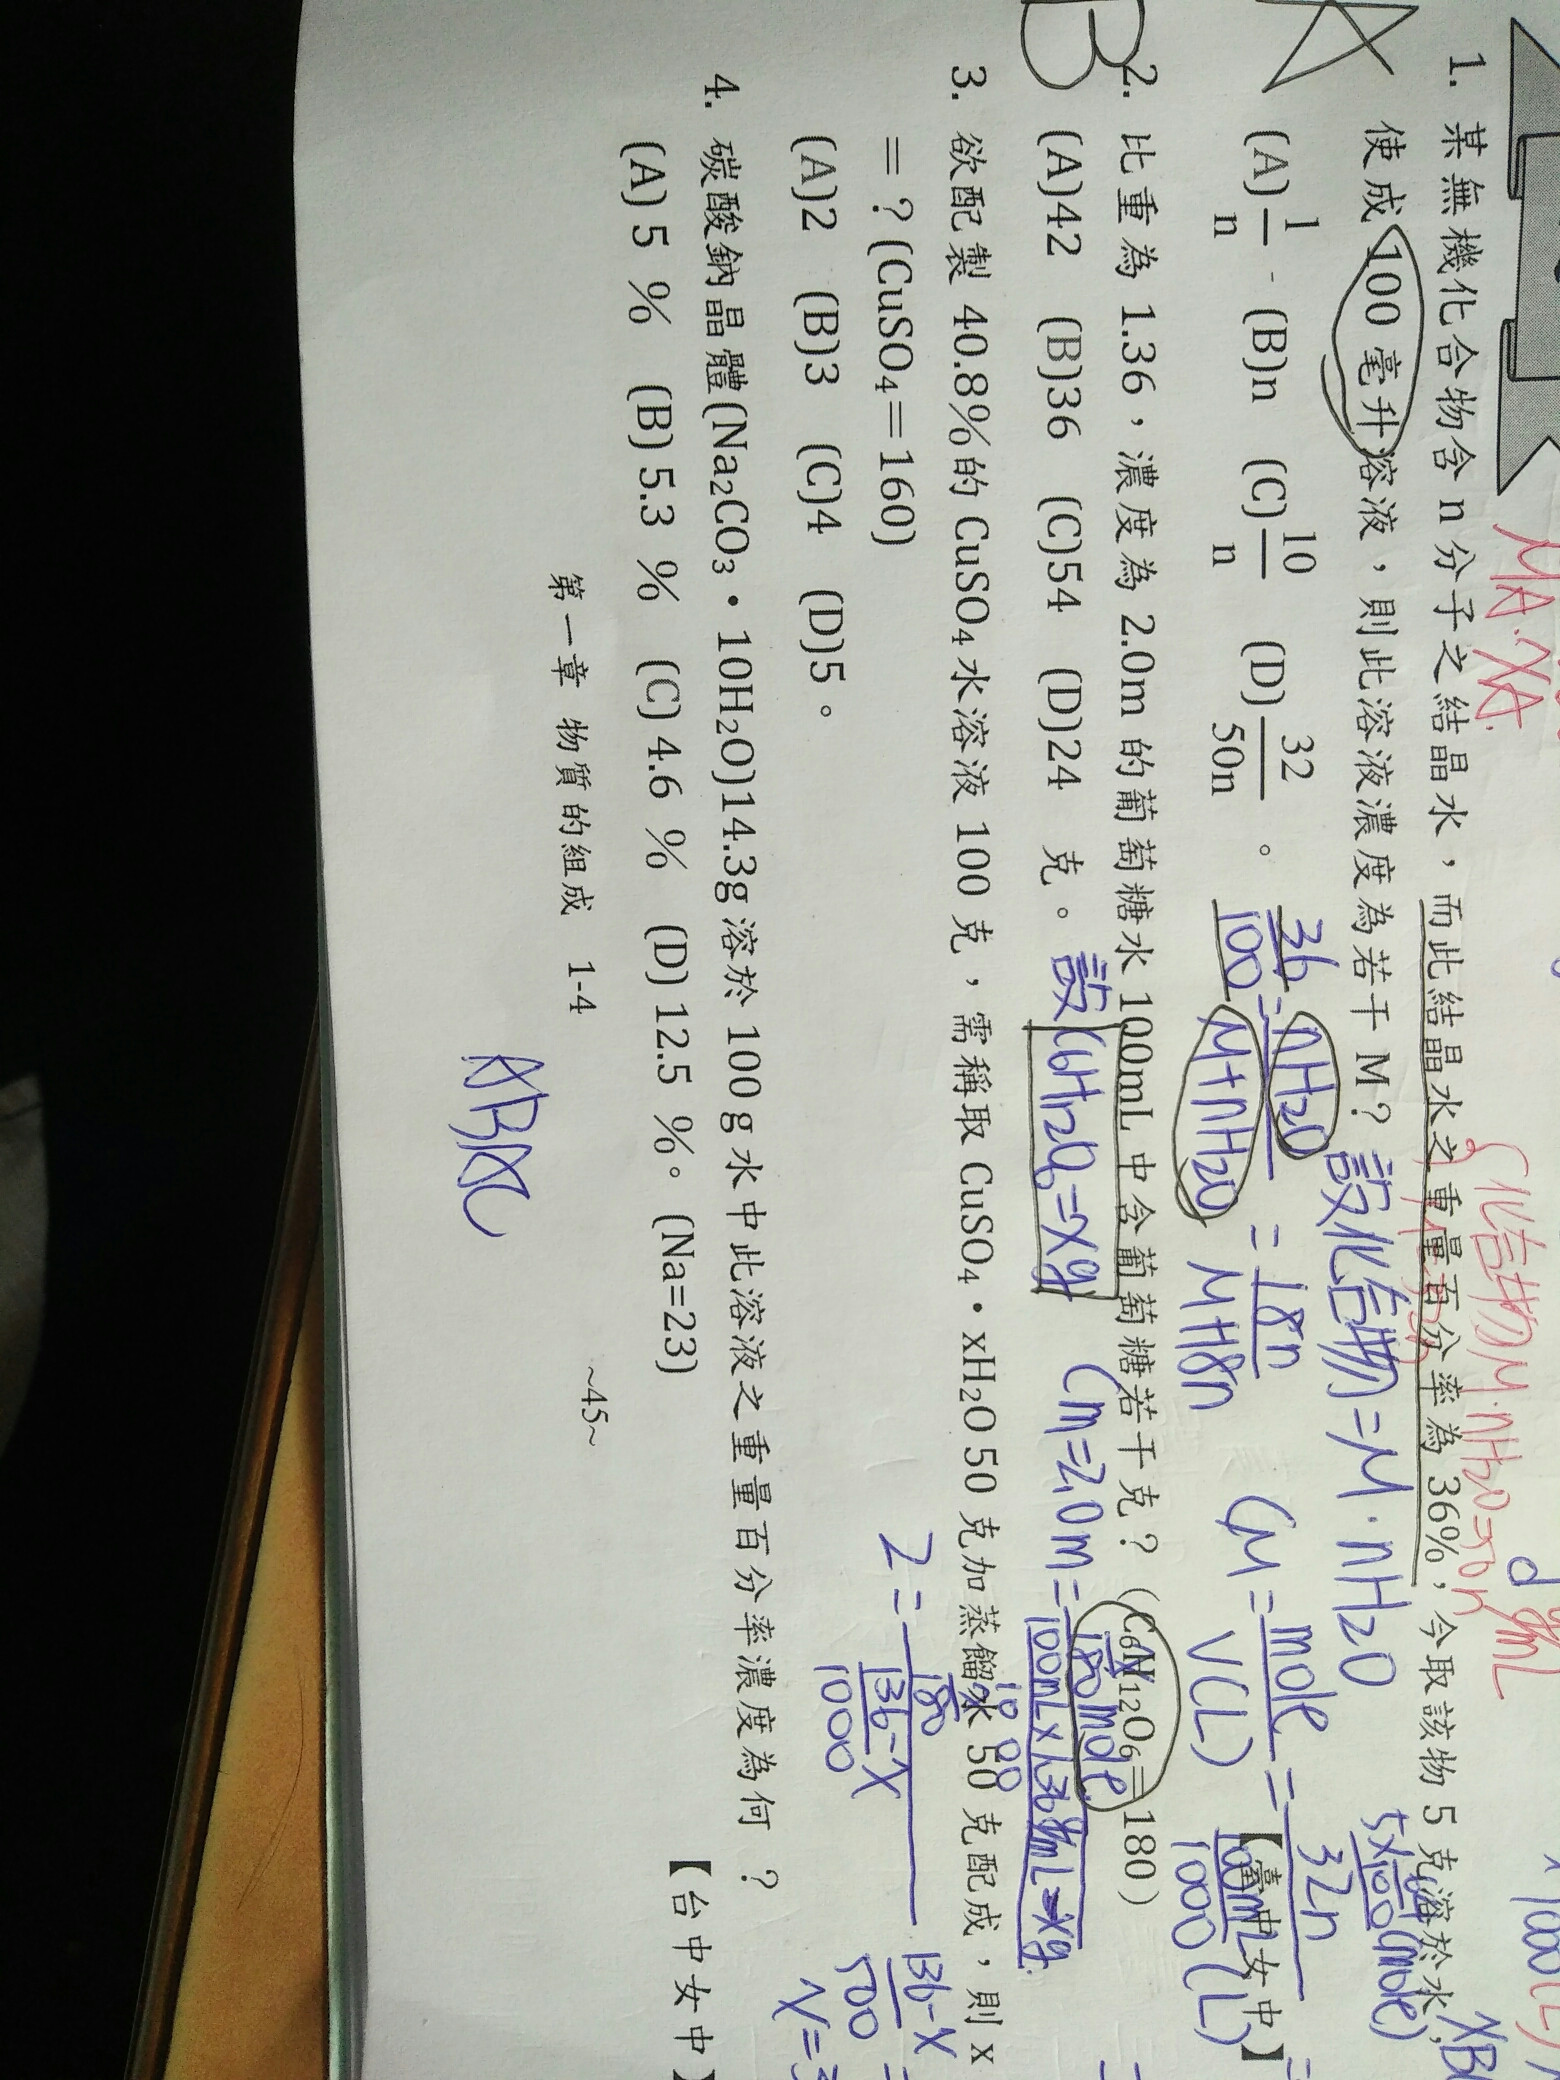 MA.XA.
化合物M·nH₂O=50n
1. 某無機化合物含 n 分子之結晶水，而此結晶水之重量百分率為 36%，今取該物 5 克溶於水，
使成 100 毫升溶液，則此溶液濃度為若干 M？ 設化合物=M·nH₂O
A
(A) 1/n (B)n (C) 10/n (D) 32/50n 。 36/100 = nH₂O/M+nH₂O = 18n/M+18n CM = mole/V(L) = 【臺中女中】
32n
100mL
1000(L)
2. 比重為 1.36，濃度為 2.0m 的葡萄糖水 100mL 中含葡萄糖若干克？（C₆H₁₂O₆＝180）
B
(A)42 (B)36 (C)54 (D)24 克。 設C₆H₁₂O₆=xg Cm=2.0m= 180 mole
100mL×1.36g/mL-xg
3. 欲配製 40.8%的 CuSO₄ 水溶液 100 克，需稱取 CuSO₄・xH₂O 50 克加蒸餾水 50 克配成，則 x
＝？(CuSO₄＝160)
2= 180
136-X
1000
136-X
500
(A)2 (B)3 (C)4 (D)5。
4. 碳酸鈉晶體(Na₂CO₃・10H₂O)14.3g 溶於 100 g 水中此溶液之重量百分率濃度為何 ？
(A) 5 % (B) 5.3 % (C) 4.6 % (D) 12.5 %。(Na=23) 【台中女中】
第一章 物質的組成 1-4 ~45~